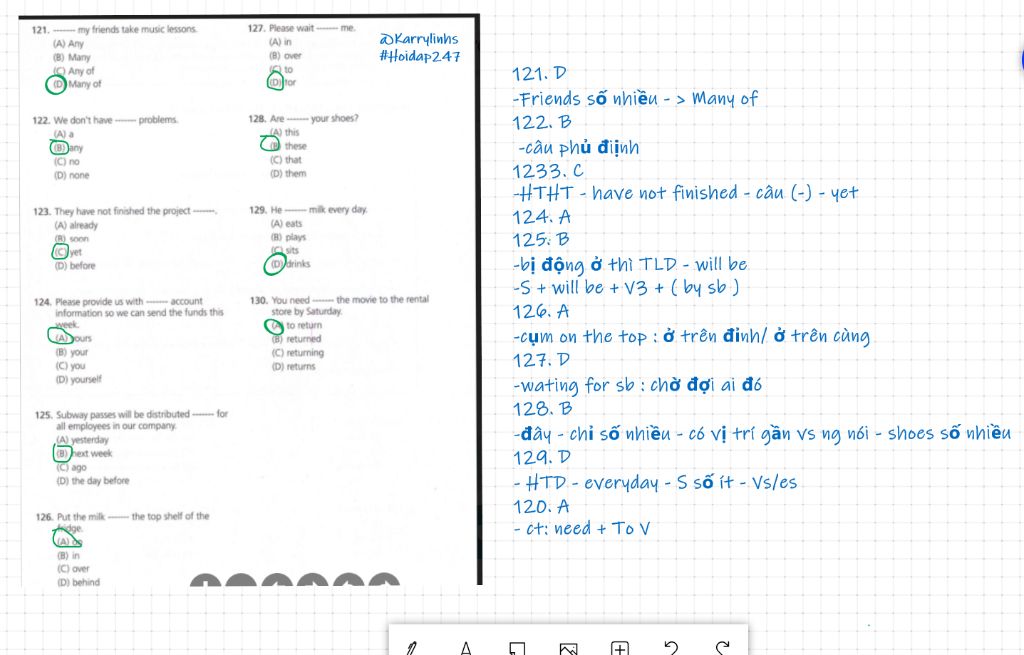 121. ------- my friends take music lessons.
(A) Any
(B) Many
(C) Any of
(D) Many of
122. We don't have ------- problems.
(A) a
(B) any
(C) no
(D) none
123. They have not finished the project -------.
(A) already
(B) soon
(C) yet
(D) before
124. Please provide us with ------- account
information so we can send the funds this
week.
(A) yours
(B) your
(C) you
(D) yourself
125. Subway passes will be distributed ------- for
all employees in our company.
(A) yesterday
(B) next week
(C) ago
(D) the day before
126. Put the milk ------- the top shelf of the
fridge.
(A) on
(B) in
(C) over
(D) behind
127. Please wait ------- me.
(A) in
(B) over
(C) to
(D) for
128. Are ------- your shoes?
(A) this
(B) these
(C) that
(D) them
129. He ------- milk every day.
(A) eats
(B) plays
(C) sits
(D) drinks
130. You need ------- the movie to the rental
store by Saturday.
(A) to return
(B) returned
(C) returning
(D) returns
@Karrylinhs
#Hoidap247
121. D
-Friends số nhiều - > Many of
122. B
-câu phủ điịnh
1233. C
-HTHT - have not finished - câu (-) - yet
124. A
125. B
-bị động ở thì TLD - will be
-S + will be + V3 + ( by sb )
126. A
-cụm on the top : ở trên đỉnh/ ở trên cùng
127. D
-wating for sb : chờ đợi ai đó
128. B
-đây - chỉ số nhiều - có vị trí gần vs ng nói - shoes số nhiều
129. D
- HTD - everyday - S số ít - Vs/es
120. A
- ct: need + To V